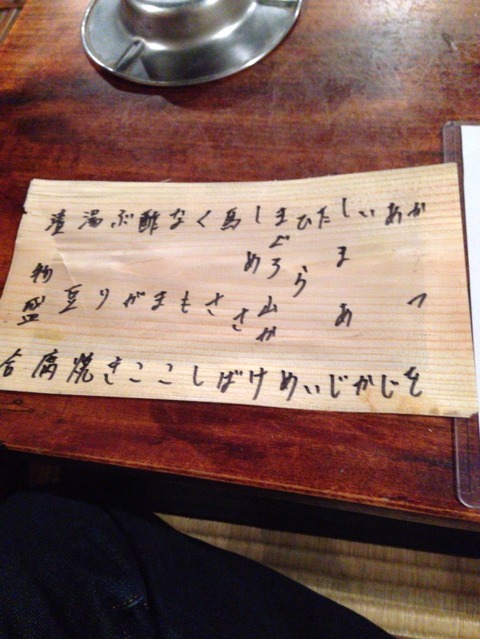 かつを
あじ
いか
しまあじ
たい
ひらめ
まぐろ山かけ
しめさば
鳥ささし
くもこ
なまこ
酢がき
ぶり焼
湯豆腐
漬物盛合